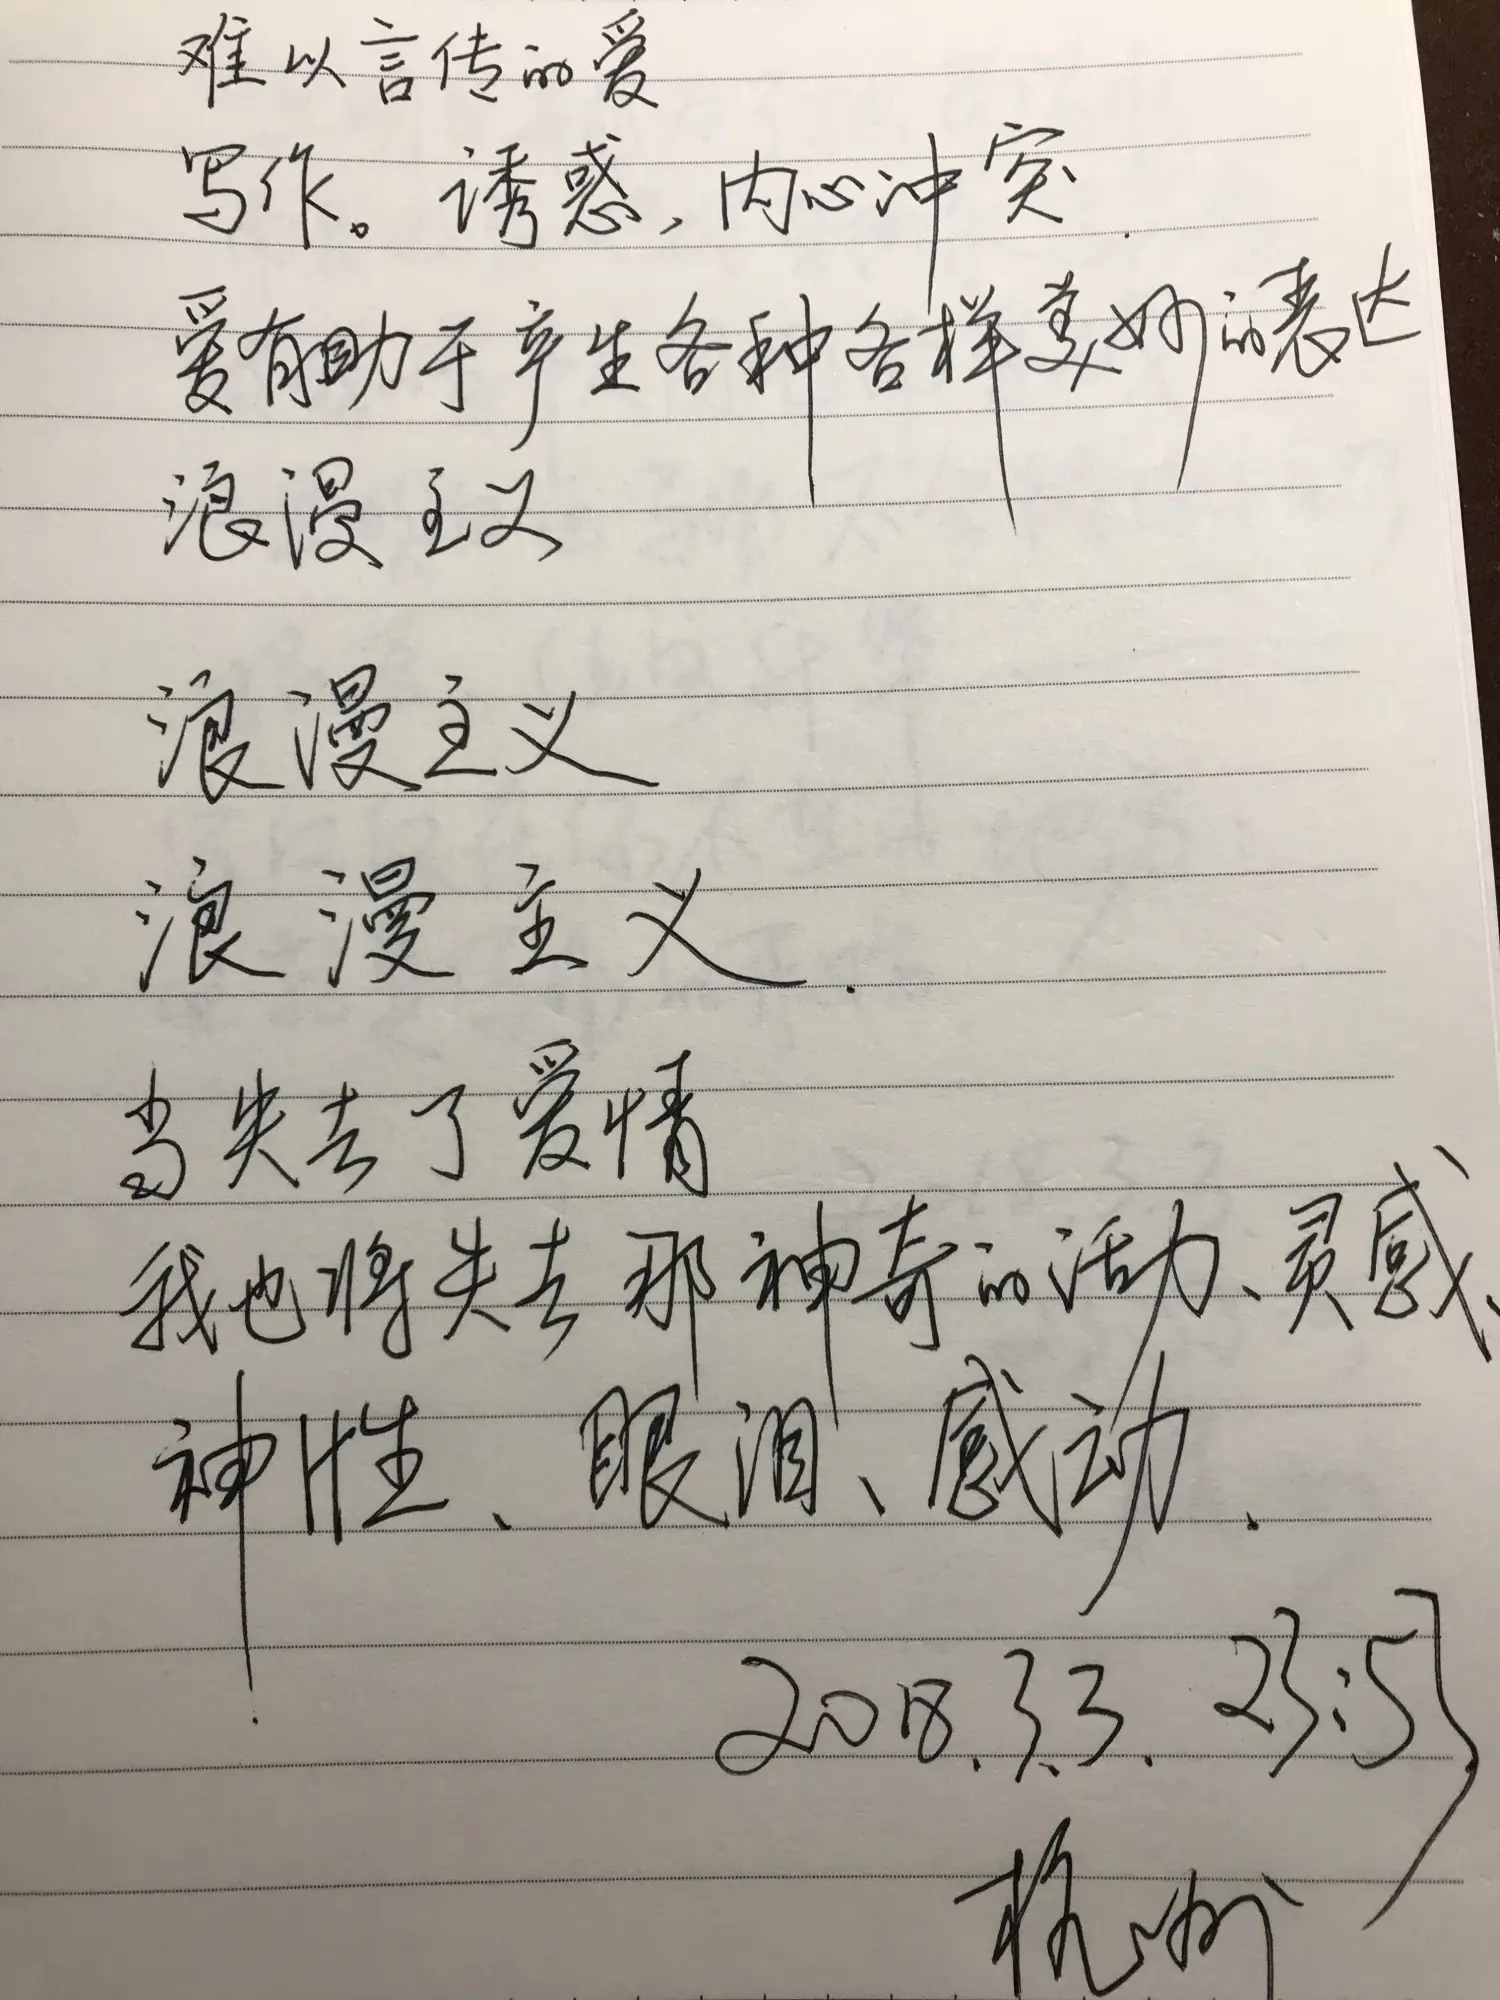 难以言传的爱
写作。诱惑，内心冲突.
爱有助于产生各种各样美妙的表达
浪漫主义
浪漫主义
浪漫主义.
当失去了爱情
我也将失去那神奇的活力、灵感、
神性、眼泪、感动.
2018.3.3. 23:53
杭州